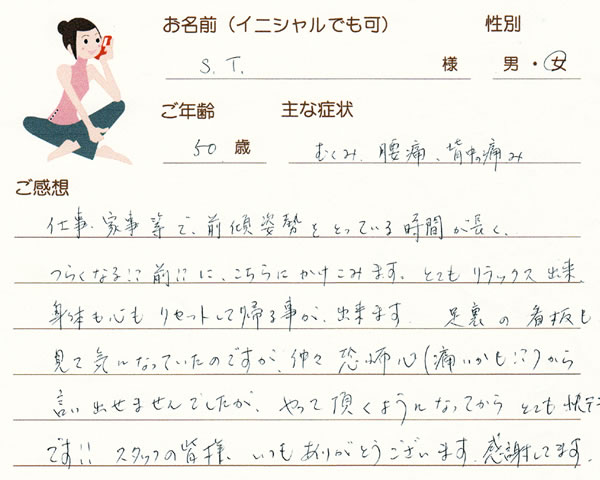 お名前（イニシャルでも可） 性別
S. T. 様 男・女
ご年齢 主な症状
50 歳 むくみ、腰痛、背中の痛み
ご感想
仕事・家事等で、前傾姿勢をとっている時間が長く、
つらくなる!?前!?に、こちらにかけこみます。とてもリラックス出来、
身体も心もリセットして帰る事が、出来ます。 足裏の看板も
見て気になっていたのですが、仲々恐怖心(痛いかも!?)から
言い出せませんでしたが、やって頂くようになってからとても快適
です!! スタッフの皆様、いつもありがとうございます。感謝してます。